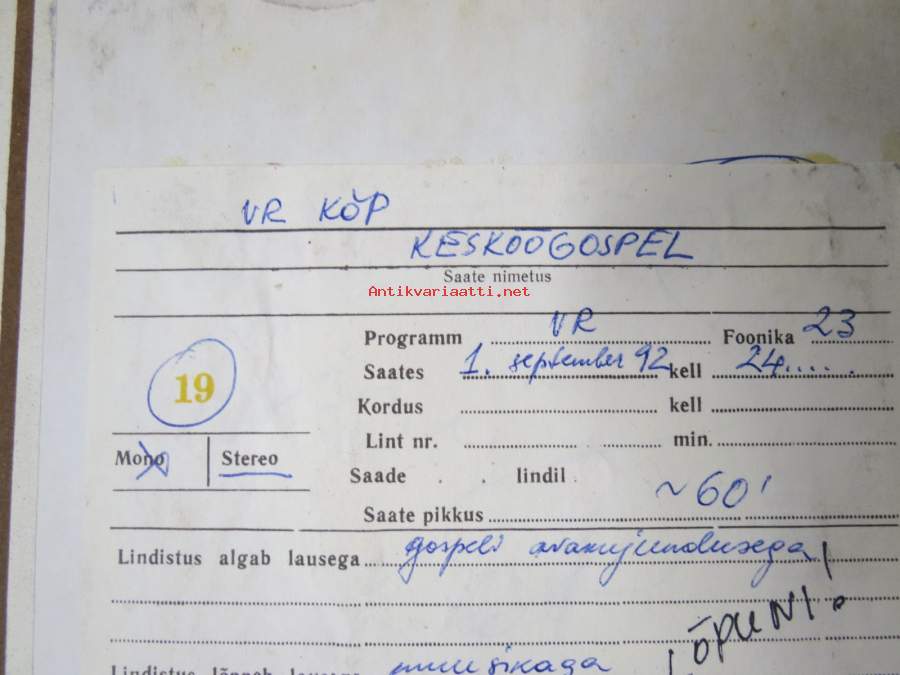 VR KÖP
KESKÖÖGOSPEL
Saate nimetus
Antikvariaatti.net
Programm VR Foonika 23
Saates 1. september 92 kell 24.....
Kordus kell
19
Lint nr. min.
Mono Stereo
Saade lindil
Saate pikkus ~60'
Lindistus algab lausega gospeli avakujundusega!
LÕPUNI!
Lindistus lõpeb lausega muusikaga